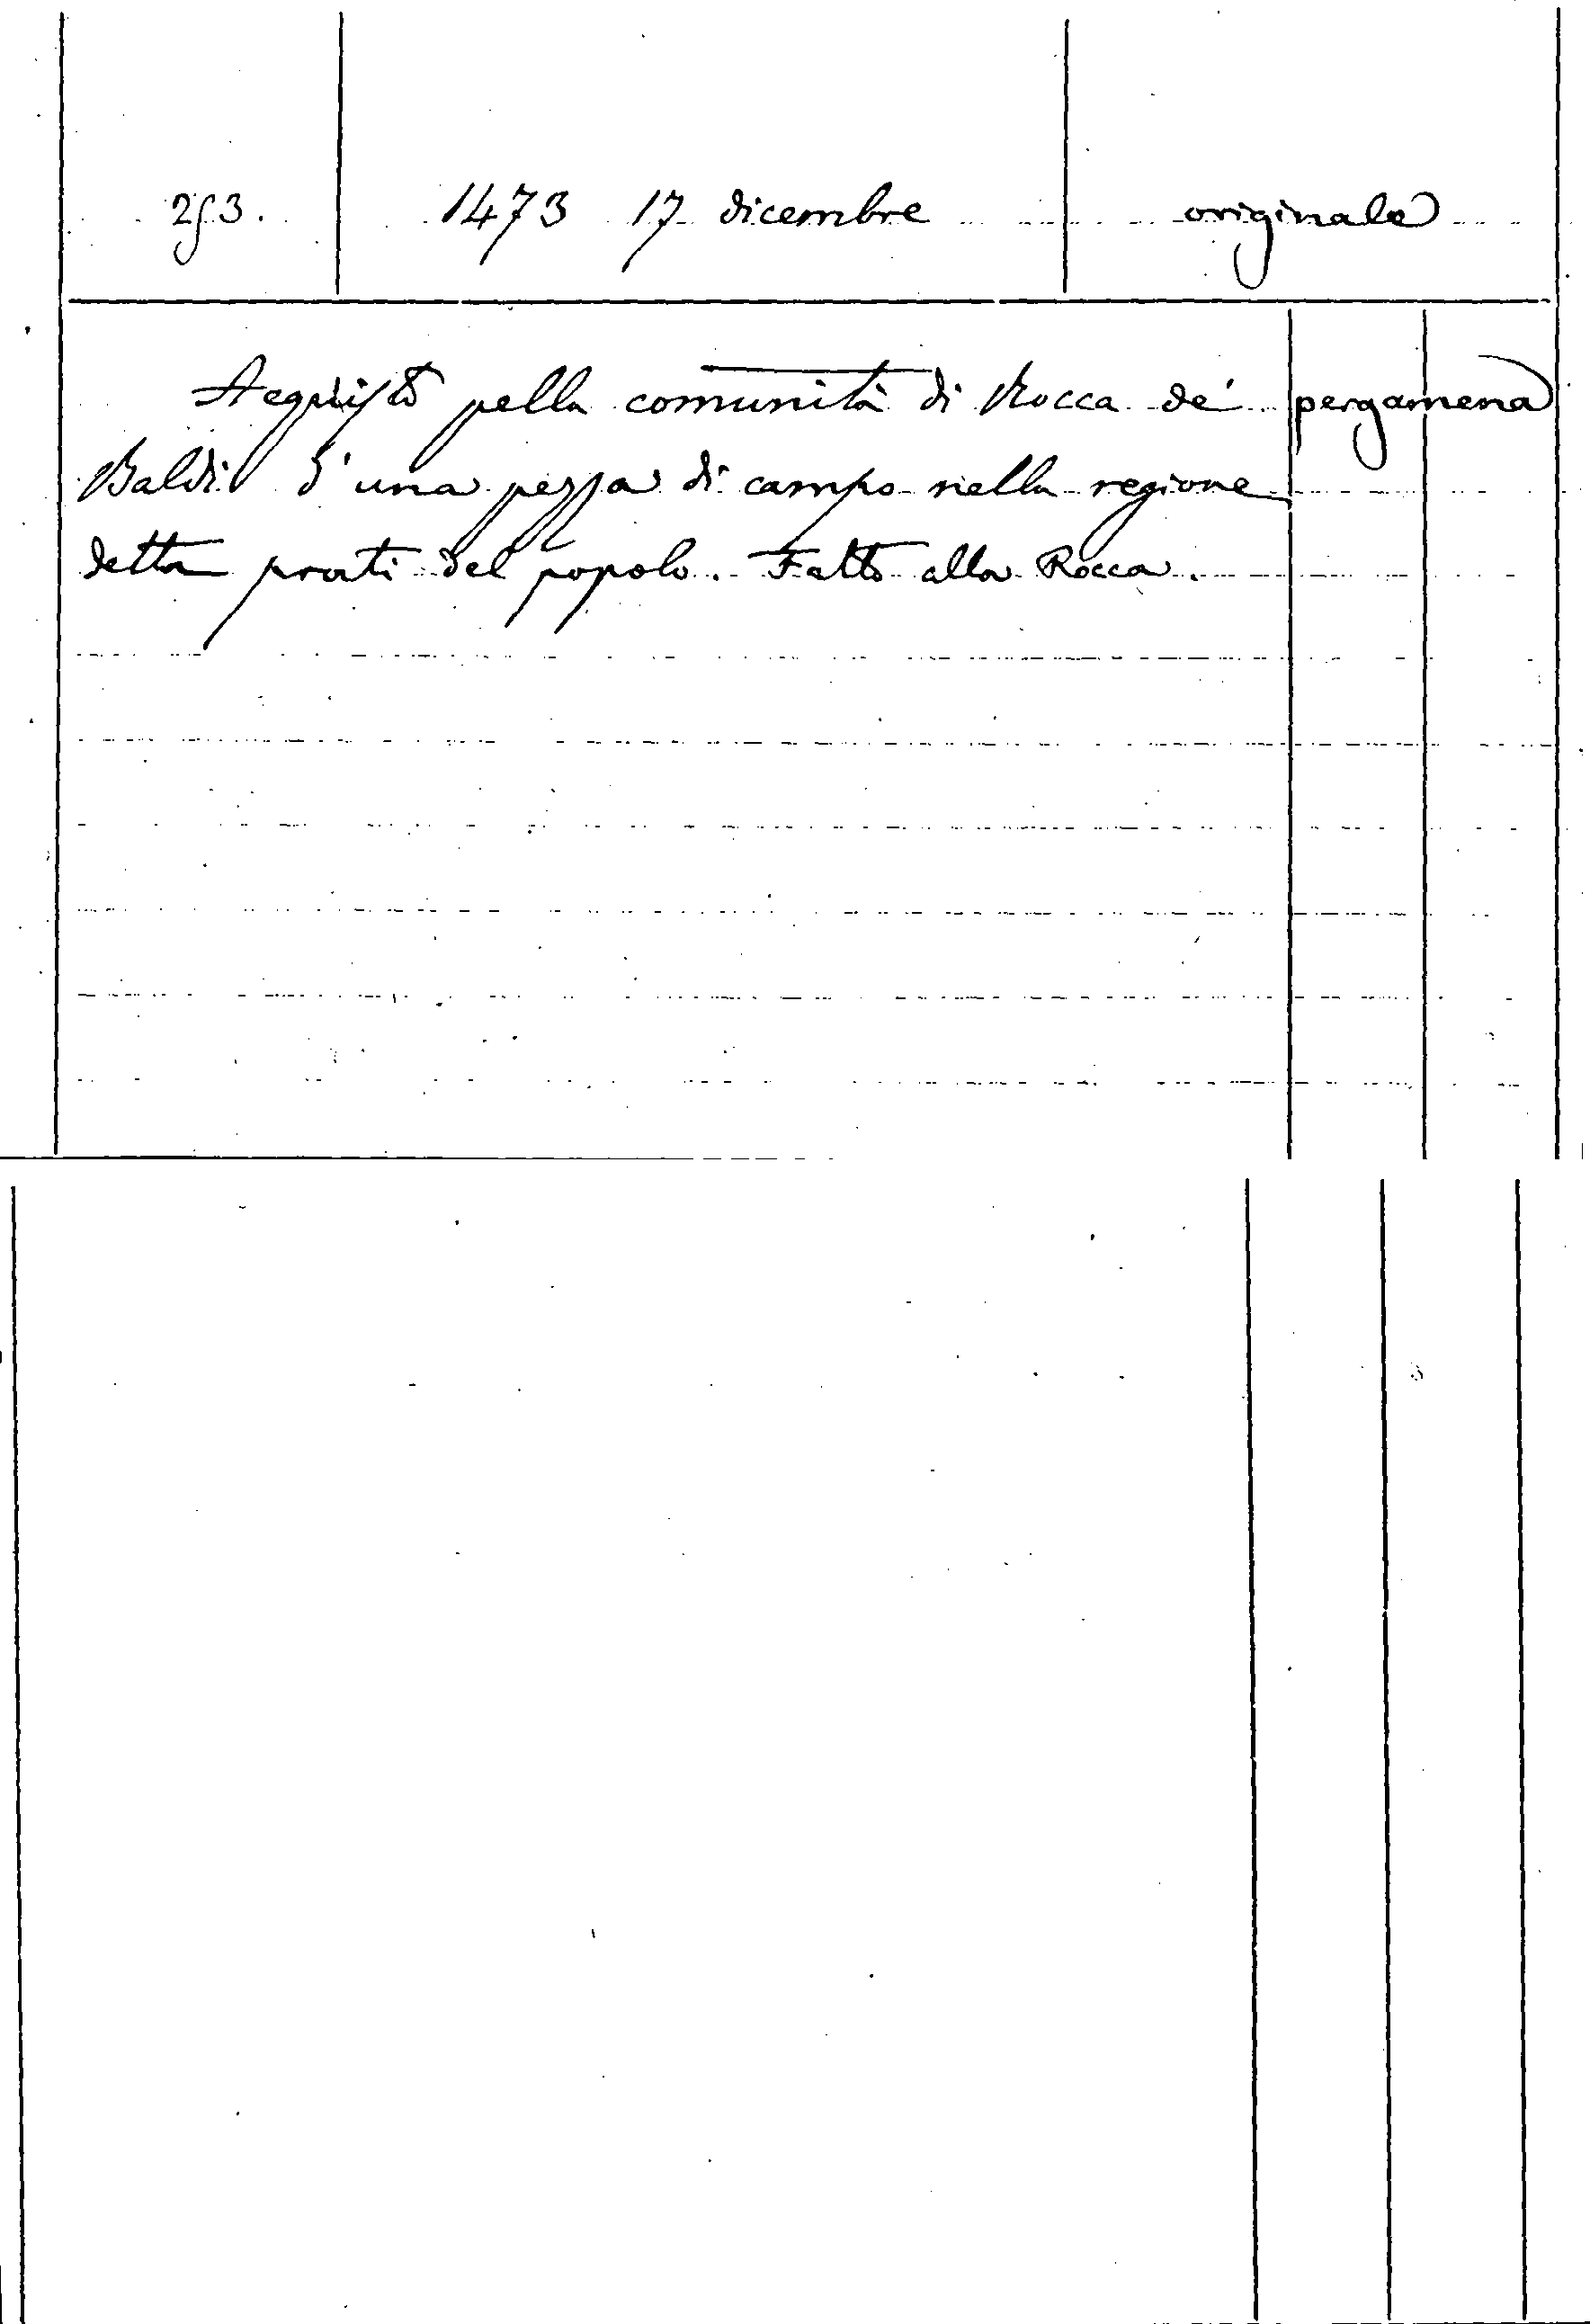 253. 1473 17 dicembre originale
Acquisto pella comunità di Rocca de' pergamena
Baldi d'una pezza di campo nella regione
detta prati del popolo. Fatto alla Rocca.